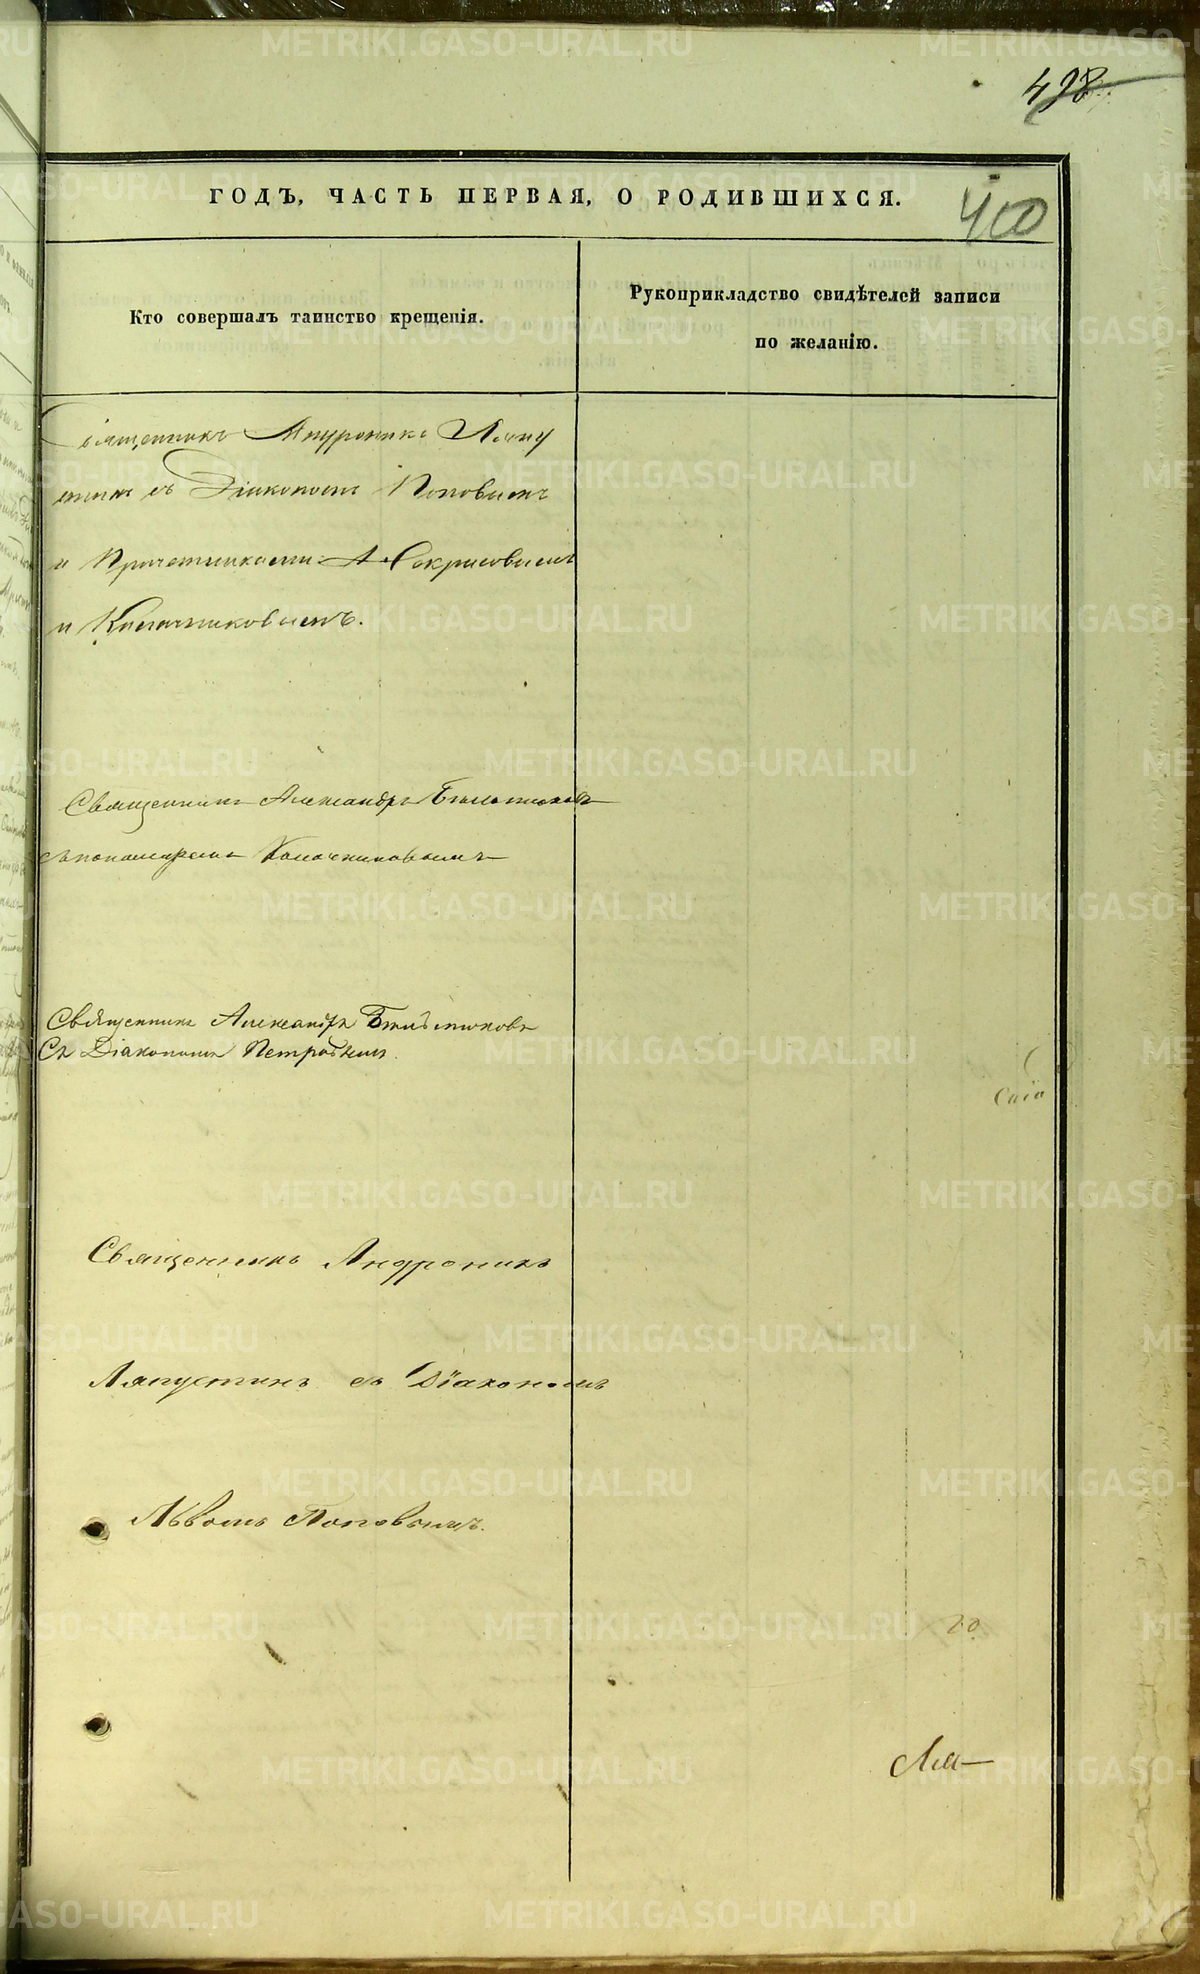 428
ГОДЪ, ЧАСТЬ ПЕРВАЯ, О РОДИВШИХСЯ.
400
Кто совершалъ таинство крещенія.
Рукоприкладство свидѣтелей записи
по желанію.
Священникъ Андроникъ Ляпу
стинъ съ Діакономъ Поповымъ
и Причетниками
и Калачниковымъ.
Священникъ Александръ
съ пономаремъ Калачниковымъ
Священникъ Александръ
Съ Діакономъ Петровымъ.
Священникъ Андроникъ
Ляпустинъ съ Діакономъ
Львомъ Поповымъ.
METRIKI.GASO-URAL.RU